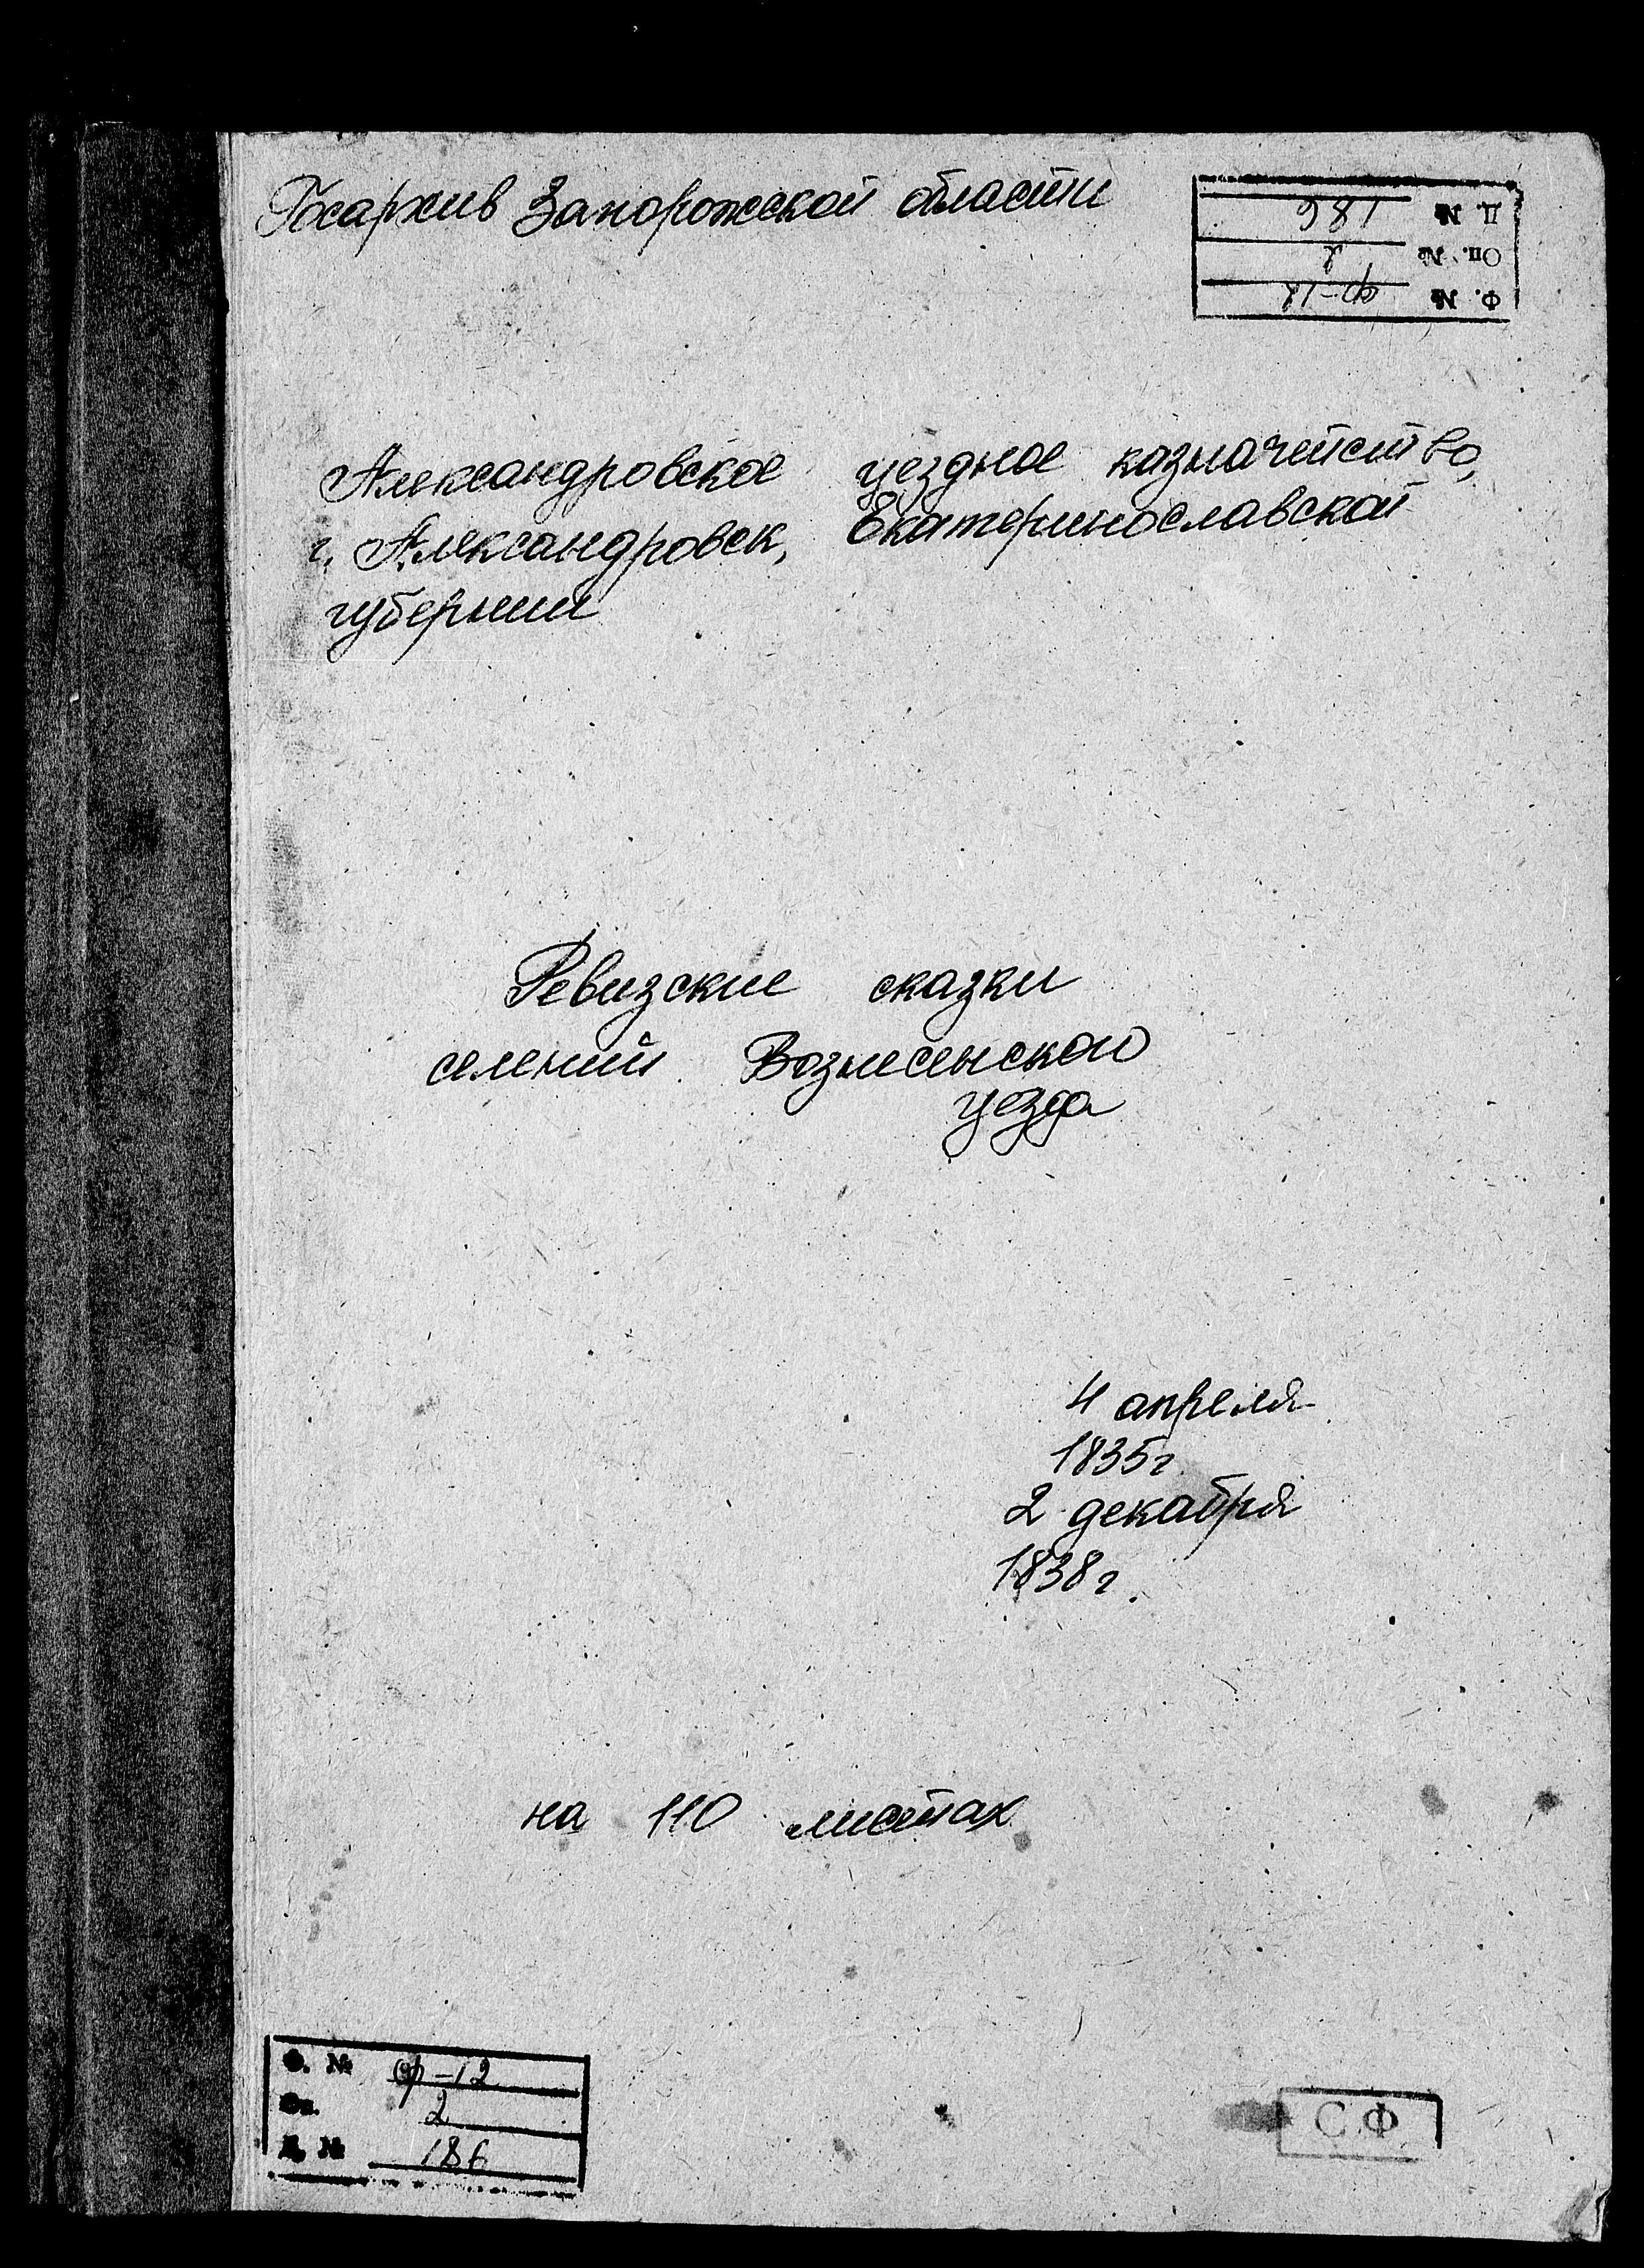 Госархив Запорожской области
Д. № 186
Оп. № 2
Ф. № ф-12
Александровское уездное казначейство,
г. Александровск, Екатеринославской
губернии
Ревизские сказки
селений Вознесенского
уезда
4 апреля
1835г.
2 декабря
1838г.
на 110 листах
Ф. № ф-12
Оп. 2
Д. № 186
С.Ф